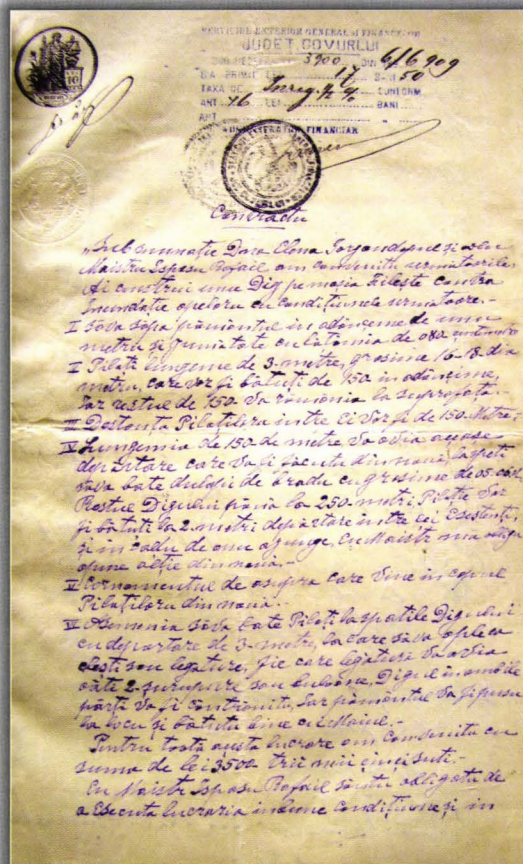 SERVICIUL EXTERIOR GENERAL AL FINANCELOR
JUDET. COVURLUI
3900 DIN 6/6 909
S'A PRIMIT LEI 17 BANI 50
TAXA DE Inreg. CONFORM
ART 16 LEI BANI
ART
ADMINISTRATOR FINANCIAR
Contractu
Maistru Rafail am convenitu urmatorile
A'i construi unu Dig pe mosia Filesti contra
Inundatie apeloru cu conditiunele urmatoare.-
I Sava sapa pamintul in adâncime de unu
metru și jumatate cu latimia de 080 centimetre
II Piloti lungime de 3 metre, grosime 16-18 dia
metru, care vor fi batuți de 150 in adâncime,
Iar restul de 150 va rămânia la suprafata.-
III Distanța Pilotilora intre Ei vor fi de 150. Metri.-
IV Lungimia de 150 de metre va avia acease
departare care va fi facuta din nou, la spate
sava bate dulapi de bradu cu grosime de 05 cm.
Restul Digului pâna la 250 metri, Pilotii vor
fi batuti la 2 metri departare intre ei Esestenti,
și in cadu de onu ajunge, Eu Maistr ma oblig
apune altie din nouă.-
V Cornamentul de asupra care vine in capul
Pilotilora din nouă.-
VI Asemenia sava bate Piloti la spatile Digului
cu departare de 3 metri, la care sava aplica
clesti sau legature, fie care legatura va avia
câte 2 șurupure sau buloane, Digul in ambile
părti va fi controlitu, Iar pamântul va fi pusu
la locu și batutu bine cu Maiul.-
Pentru toată austa lucrare am convenitu cu
suma de lei 3500 trii mii cinci suti.-
Eu Maistr Rafail saintu obligatu de
a Esecuta lucraria in bune conditiune și in